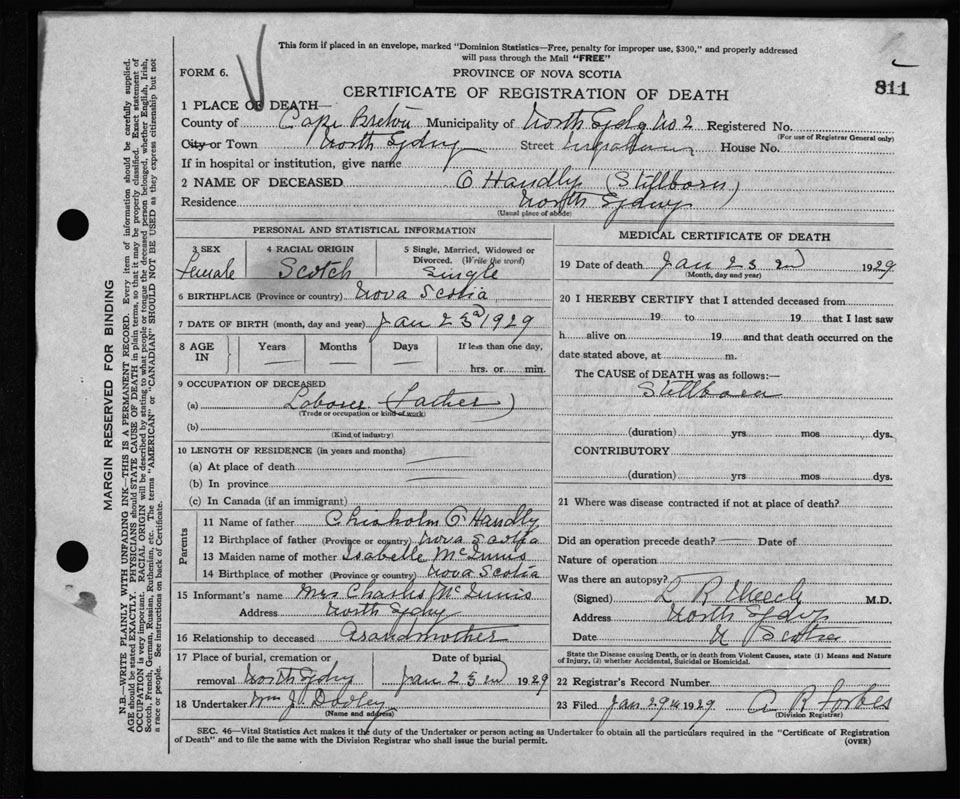 This form if placed in an envelope, marked "Dominion Statistics—Free, penalty for improper use, $300," and properly addressed
will pass through the Mail "FREE"
FORM 6.
PROVINCE OF NOVA SCOTIA
811
CERTIFICATE OF REGISTRATION OF DEATH
1 PLACE OF DEATH—
County of Cape Breton Municipality of North Sydny No 2 Registered No.
(For use of Registrar General only)
City or Town North Sydny Street House No.
If in hospital or institution, give name
2 NAME OF DECEASED O Handly (Stillborn)
Residence North Sydny
(Usual place of abode)
PERSONAL AND STATISTICAL INFORMATION
3 SEX 4 RACIAL ORIGIN 5 Single, Married, Widowed or
Divorced. (Write the word)
Female Scotch Single
6 BIRTHPLACE (Province or country) Nova Scotia
7 DATE OF BIRTH (month, day and year) Jan 23d 1929
8 AGE IN Years Months Days If less than one day,
hrs. or min.
9 OCCUPATION OF DECEASED
(a) Laborer (Father)
(Trade or occupation or kind of work)
(b)
(Kind of industry)
10 LENGTH OF RESIDENCE (in years and months)
(a) At place of death
(b) In province
(c) In Canada (if an immigrant)
Parents
11 Name of father Chisholm O Handly
12 Birthplace of father (Province or country) Nova Scotia
13 Maiden name of mother Isabelle McInnis
14 Birthplace of mother (Province or country) Nova Scotia
15 Informant's name Mrs Charles McInnis
Address North Sydny
16 Relationship to deceased Grandmother
17 Place of burial, cremation or Date of burial
removal North Sydny Jan 23rd 1929
18 Undertaker Wm J. Dooley
(Name and address)
MEDICAL CERTIFICATE OF DEATH
19 Date of death Jan 23rd 1929
(Month, day and year)
20 I HEREBY CERTIFY that I attended deceased from
19 to 19 that I last saw
h alive on 19 and that death occurred on the
date stated above, at m.
The CAUSE of DEATH was as follows:—
Stillborn
(duration) yrs mos dys.
CONTRIBUTORY
(duration) yrs mos dys.
21 Where was disease contracted if not at place of death?
Did an operation precede death? Date of
Nature of operation
Was there an autopsy?
(Signed) L R M.D.
Address North Sydny
Date N Scotia
State the Disease causing Death, or in death from Violent Causes, state (1) Means and Nature
of Injury, (2) whether Accidental, Suicidal or Homicidal.
22 Registrar's Record Number
23 Filed Jan 29th 1929 A R Forbes
(Division Registrar)
SEC. 46—Vital Statistics Act makes it the duty of the Undertaker or person acting as Undertaker to obtain all the particulars required in the "Certificate of Registration
of Death" and to file the same with the Division Registrar who shall issue the burial permit.
(OVER)
MARGIN RESERVED FOR BINDING
N.B.—WRITE PLAINLY WITH UNFADING INK—THIS IS A PERMANENT RECORD. Every item of information should be carefully supplied.
AGE should be stated EXACTLY. PHYSICIANS should STATE CAUSE OF DEATH in plain terms, so that it may be properly classified. Exact statement of
OCCUPATION is very important. RACIAL ORIGIN will be described by stating to what people or tongue the deceased person belonged, whether English, Irish,
Scotch, French, German, Russian, Ruthenian, etc. The terms "AMERICAN" or "CANADIAN" SHOULD NOT BE USED as they express citizenship but not
a race or people. See instructions on back of Certificate.